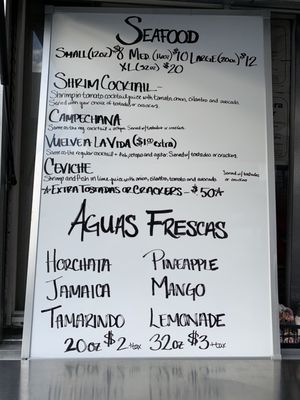 SEAFOOD
SMALL(12oz) $8 MED. (16oz) $10 LARGE(20oz) $12
XL (32oz) $20
SHRIM COCKTAIL
Shrimp in tomato cocktail juice with tomato, onion, cilantro and avocado.
Served with your choice of tostadas or crackers.
CAMPECHANA
Same as the reg. cocktail + octopus. Served w/ tostadas or crackers
VUELVE A LA VIDA ($1.00 extra)
Same as the regular cocktail + fish, octopus and oyster. Served w/ tostadas or crackers.
CEVICHE
Shrimp and fish in lime juice with onion, cilantro, tomato and avocado Served w/ tostadas
or crackers
*EXTRA TOSTADAS OR CRACKERS - $.50*
AGUAS FRESCAS
HORCHATA PINEAPPLE
JAMAICA MANGO
TAMARINDO LEMONADE
20oz $2+tax 32oz $3+tax